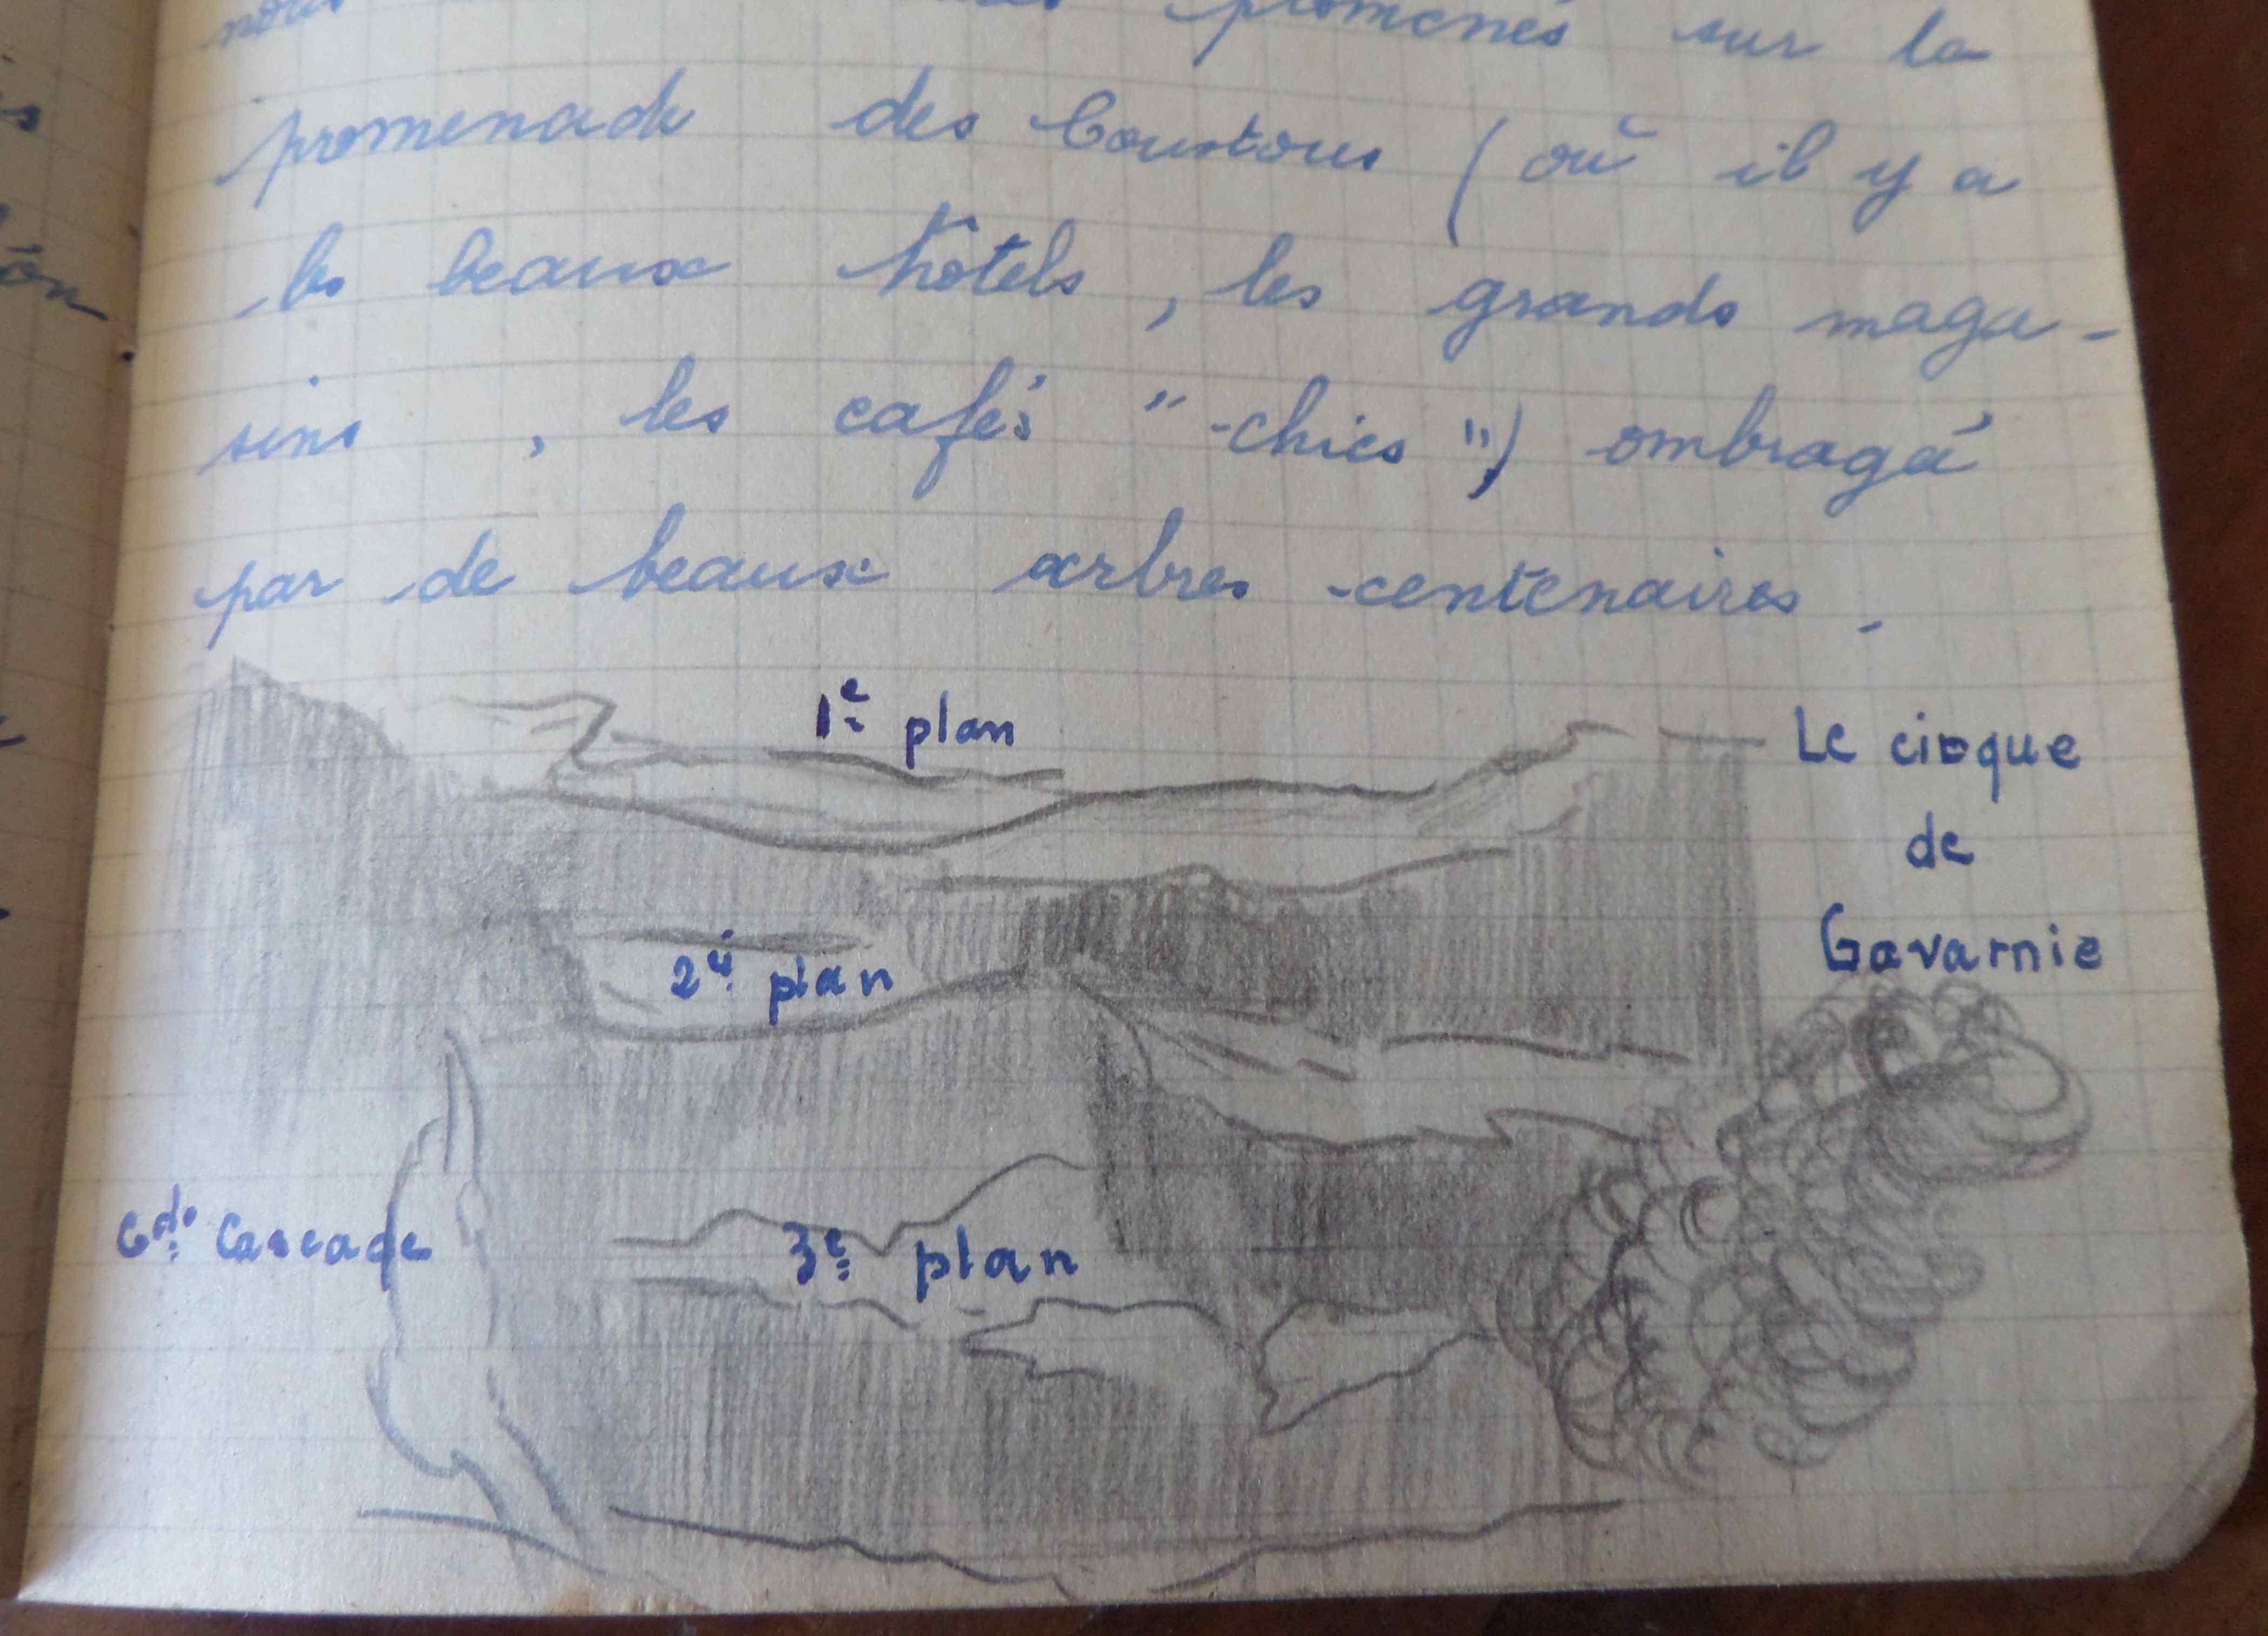 nous promenés sur la
promenade des Coustous (où il y a
les beaux hôtels, les grands maga-
sins, les cafés "chics") ombragé
par de beaux arbres centenaires.
1e plan
Le cirque
de
Gavarnie
2e plan
Gde Cascade
3e plan